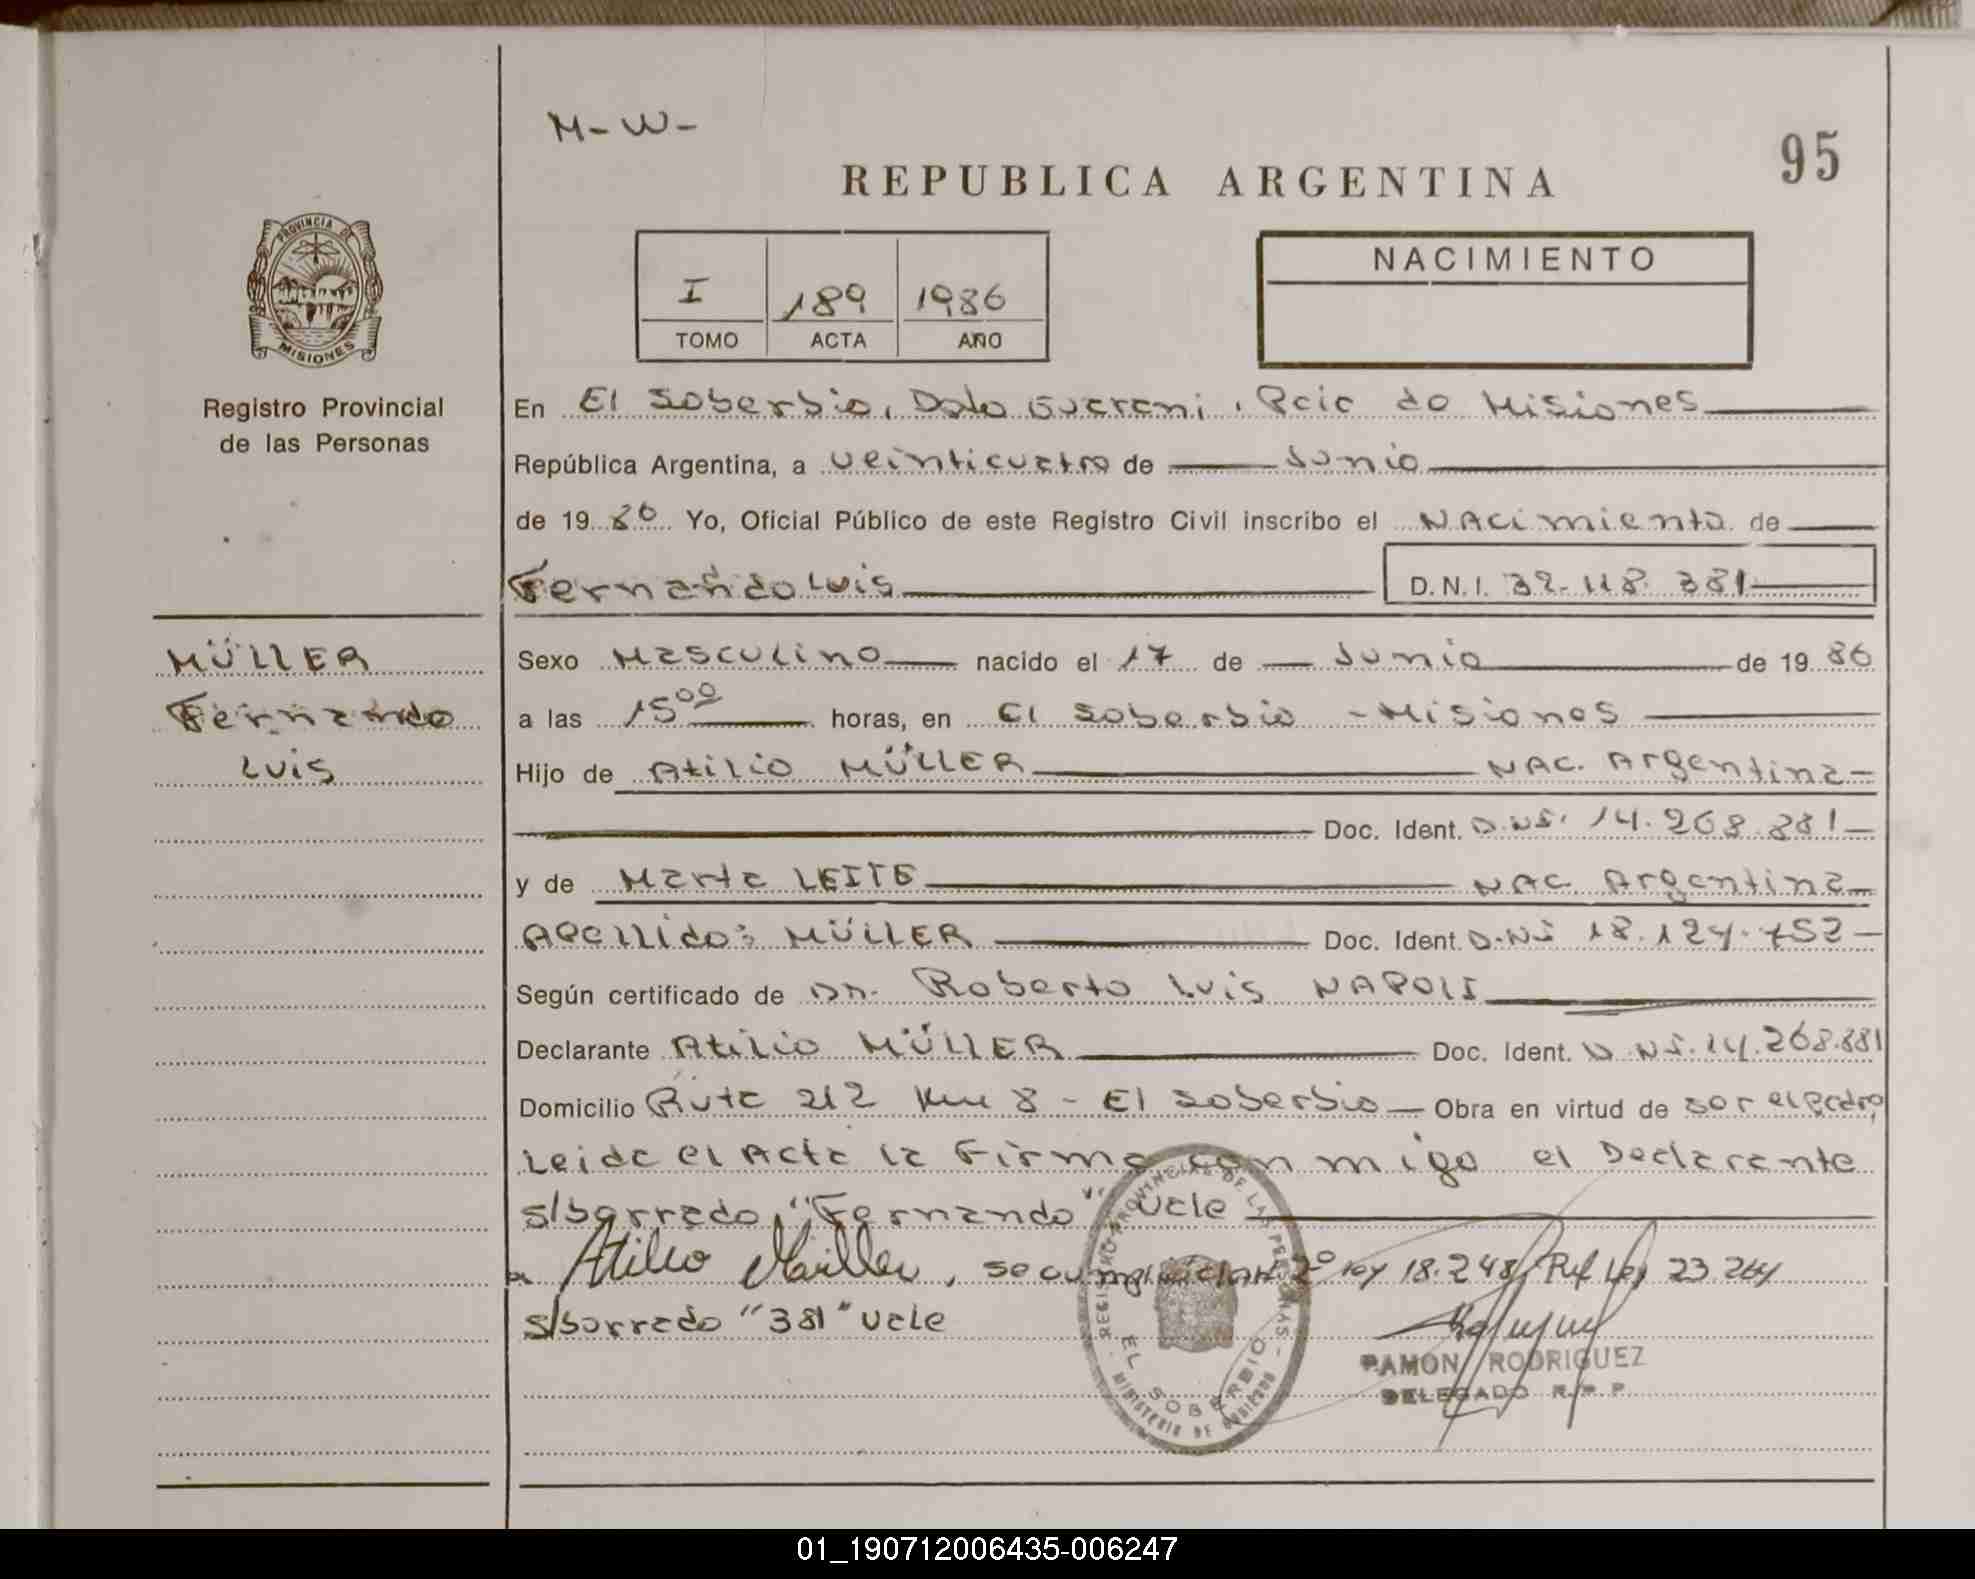 M-W-
95
REPUBLICA ARGENTINA
PROVINCIA DE
MISIONES
Registro Provincial
de las Personas
I 189 1986
TOMO ACTA AÑO
NACIMIENTO
En El Soberbio, Dpto Guarani, Pcia de Misiones
República Argentina, a veinticuatro de Junio
de 19 86 Yo, Oficial Público de este Registro Civil inscribo el NAcimiento de
Fernando Luis D.N.I. 32.118.381
MÜLLER
Fernando
Luis
Sexo Masculino nacido el 17 de Junio de 19 86
a las 15⁰⁰ horas, en El Soberbio - Misiones
Hijo de Atilio MÜLLER NAC. Argentina
Doc. Ident. D.NI. 14.268.881
y de Marta LEITE NAC. Argentina
Apellido: MÜLLER Doc. Ident. D.NI 18.124.752
Según certificado de Dr. Roberto Luis NAPOLI
Declarante Atilio MÜLLER Doc. Ident. D.NI. 14.268.881
Domicilio Ruta 212 Km 8 - El Soberbio Obra en virtud de ser el padre,
Leida el Acta la Firma con migo el Declarante
s/borrado "Fernando" vale
Atilio Müller, se cumple 2º ley 18.248 Ref Ley 23.264
s/borrado "381" vale
REGISTRO PROVINCIAL DE LAS PERSONAS
EL SOBERBIO
MINISTERIO DE GOBIERNO
RAMON RODRIGUEZ
DELEGADO R.P.P.
01_190712006435-006247